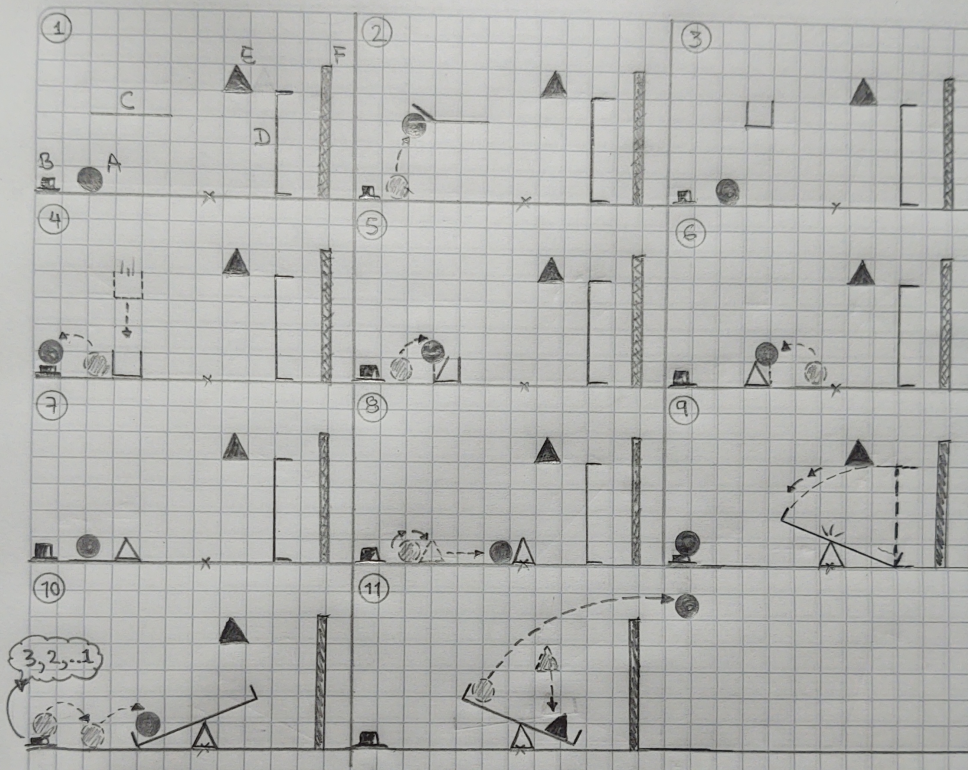 1
E
F
C
D
B
A
2
3
4
5
6
7
8
9
10
3, 2, ..1
11